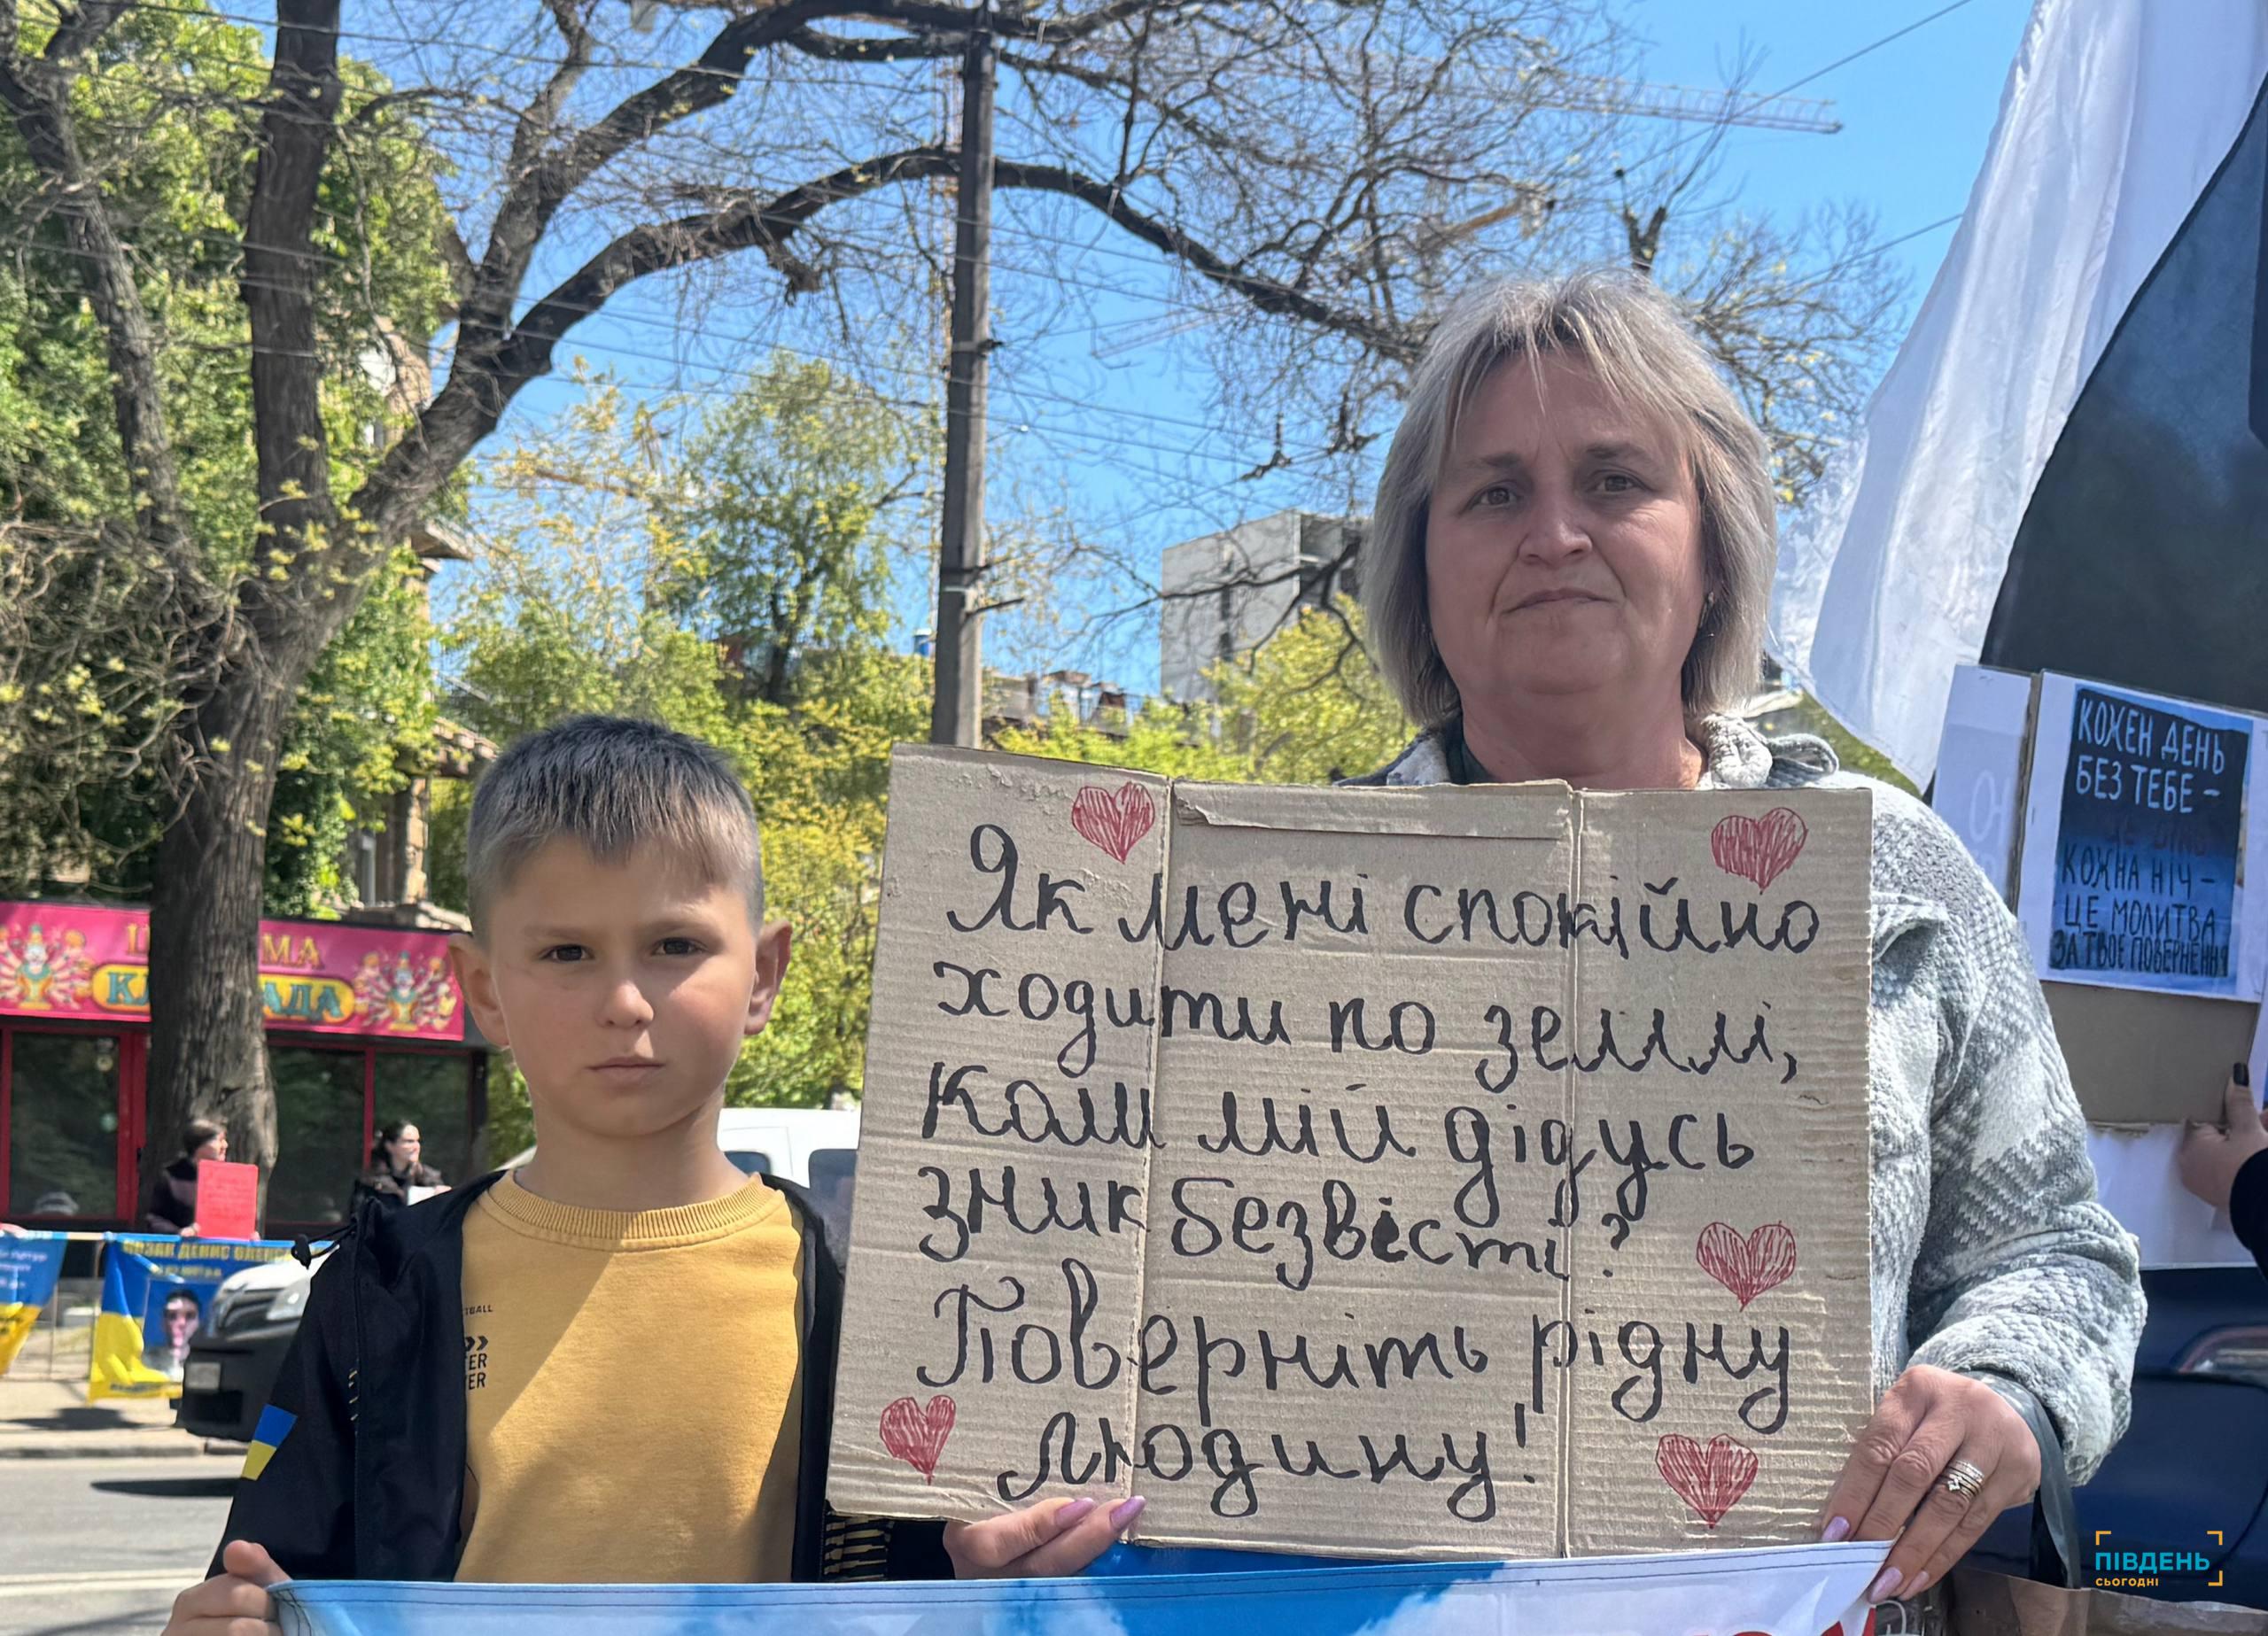 Як мені спокійно
ходити по землі,
Коли мій дідусь
зник безвісті?
Поверніть рідну
людину!
КОЖЕН ДЕНЬ
БЕЗ ТЕБЕ –
КОЖНА НІЧ –
ЦЕ МОЛИТВА
ЗА ТВОЄ ПОВЕРНЕННЯ
КОЗАК ДЕНИС
ПІВДЕНЬ
СЬОГОДНІ